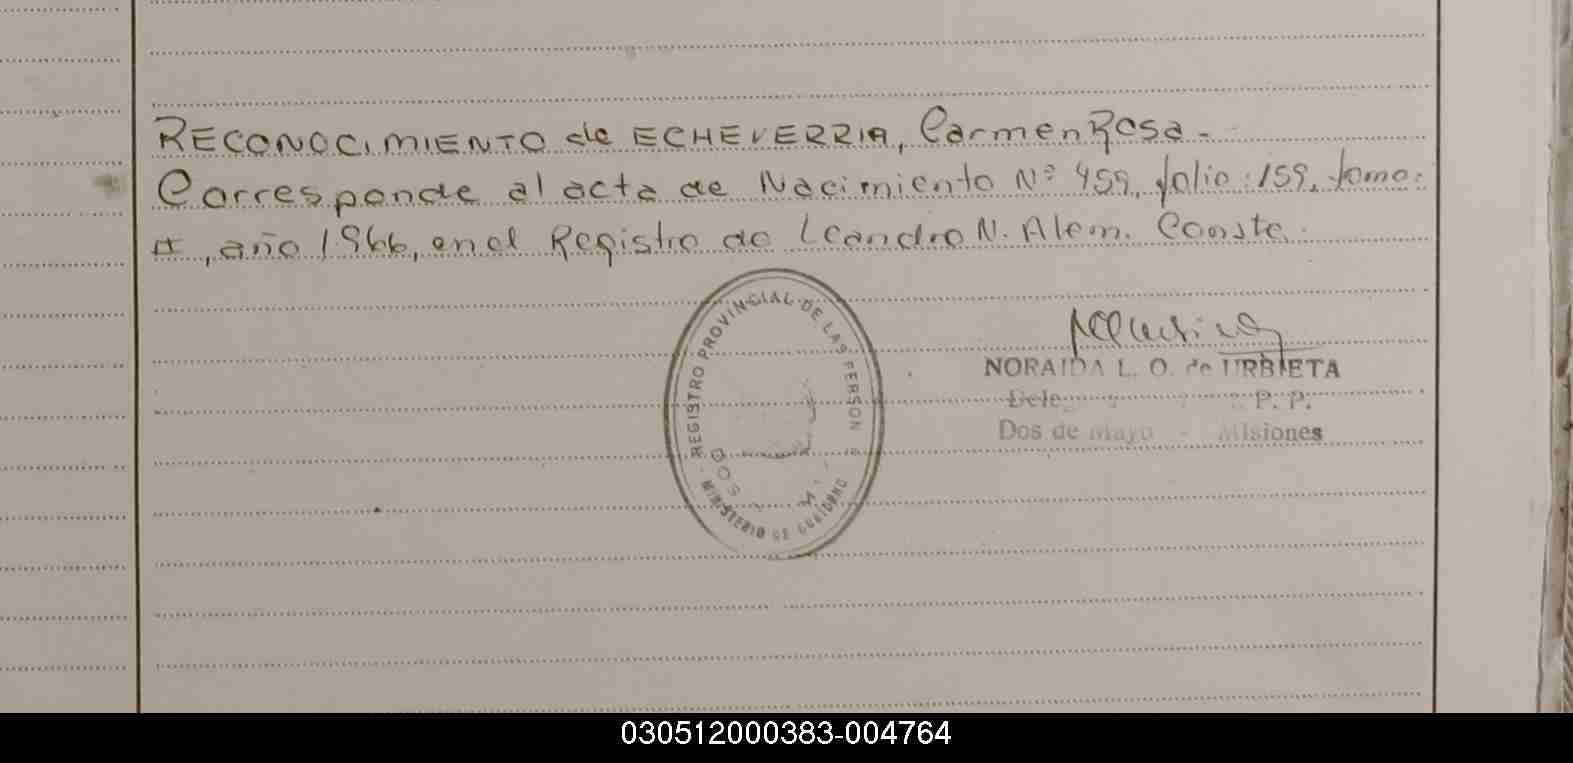 RECONOCIMIENTO de ECHEVERRIA, Carmen Rosa.-
Corresponde al acta de Nacimiento Nº 459, folio: 159, tomo:
II, año 1966, en el Registro de Leandro N. Alem. Conste.
REGISTRO PROVINCIAL DE LAS PERSON
MINISTERIO DE GOBIERNO
NORAIDA L. O. de URBIETA
Dele P. P.
Dos de Mayo - Misiones
030512000383-004764